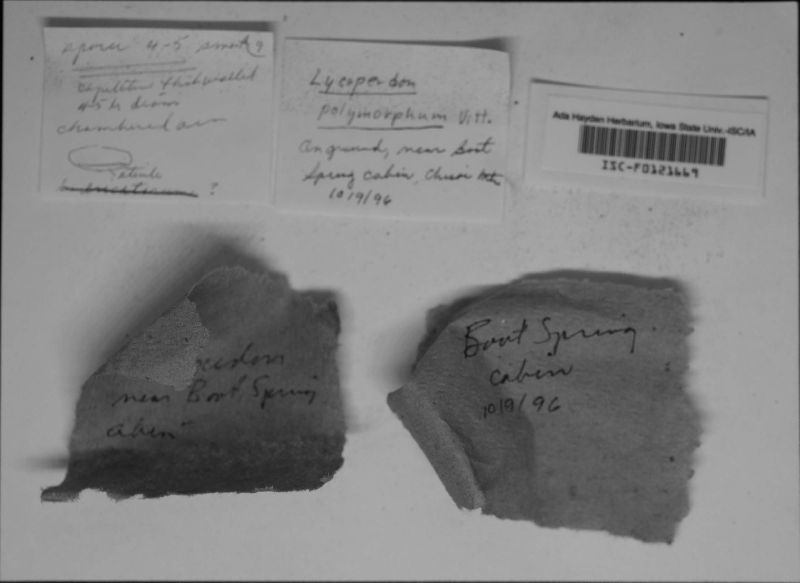 spores 4-5 smooth?
capillitium thickwalled
4-5 µ diam
chambered
?
Lycoperdon
polymorphum Vitt.
on ground, near Boot
Spring cabin, Chisos Mts
10/9/96
Ada Hayden Herbarium, Iowa State Univ.-ISC/IA
ISC-F0121669
near Boot Spring
cabin
Boot Spring
cabin
10/9/96